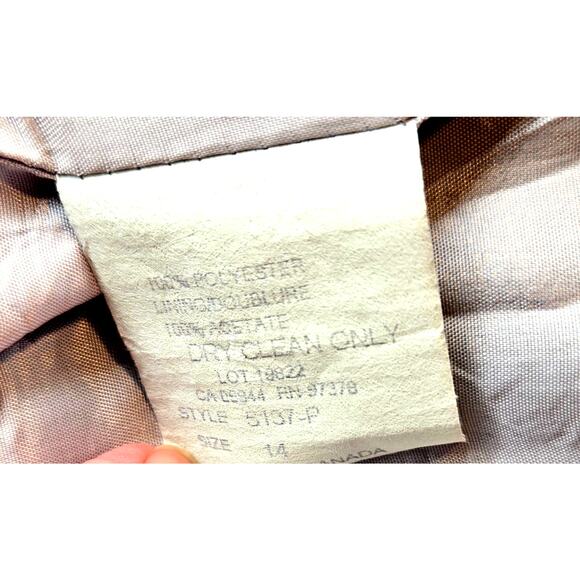 100% POLYESTER
LINING/DOUBLURE
100% ACETATE
DRY CLEAN ONLY
LOT 19822
CA 09944 RN 97378
STYLE 5137-P
SIZE 14
ANADA